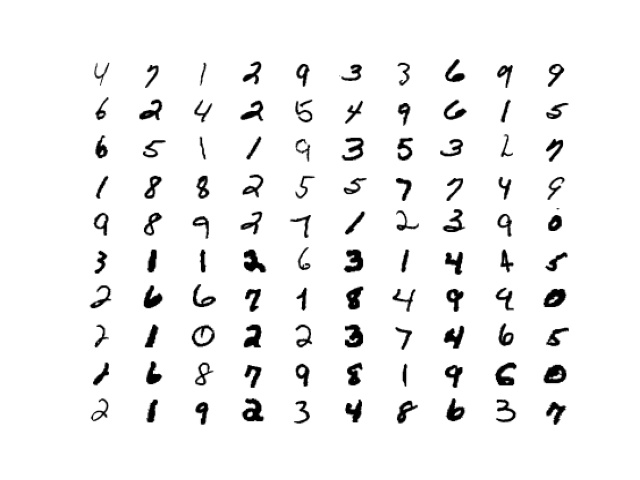 4 7 1 2 9 3 3 6 9 9
6 2 4 2 5 4 9 6 1 5
6 5 1 1 9 3 5 3 2 7
1 8 8 2 5 5 7 7 4 9
9 8 9 2 7 1 2 3 9 0
3 1 1 2 6 3 1 4 4 5
2 6 6 7 1 8 4 9 9 0
2 1 0 2 2 3 7 4 6 5
2 6 8 7 9 8 1 9 6 0
2 1 9 2 3 4 8 6 3 7